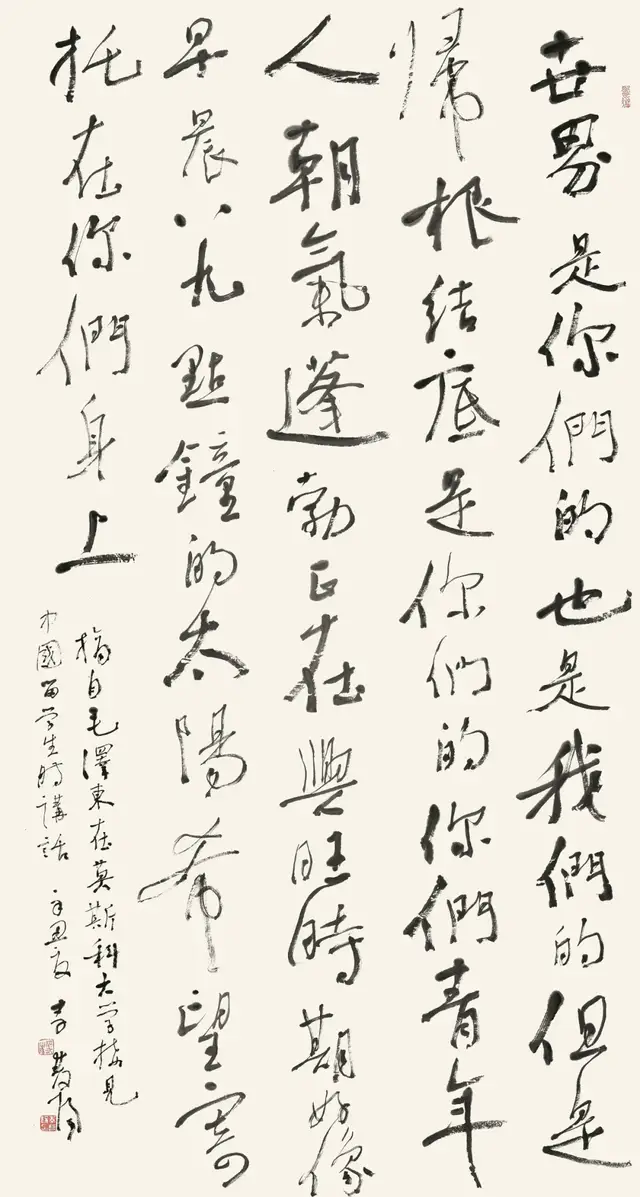 世界是你們的也是我們的但是
歸根結底是你們的你們青年
人朝氣蓬勃正在興旺時期好像
早晨八九點鐘的太陽希望寄
托在你們身上
摘自毛澤東在莫斯科大学接見
中國留学生時講話 辛丑夏